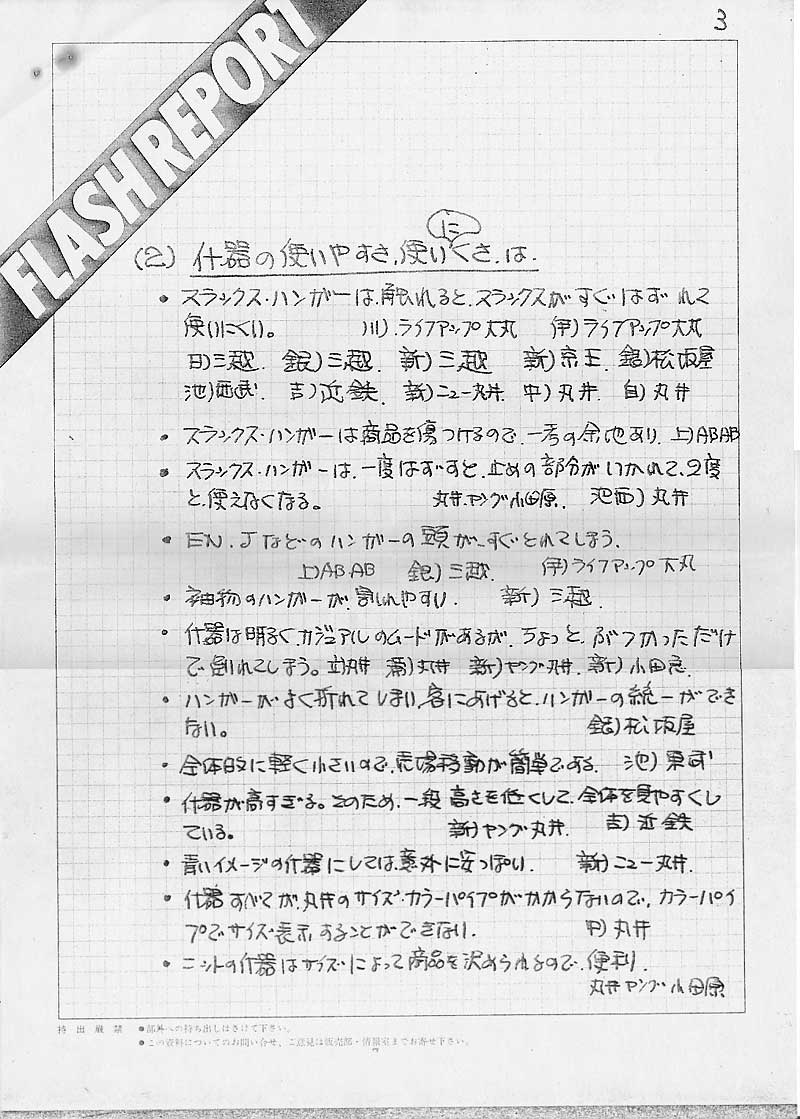 3
FLASH REPORT
(2) 什器の使いやすさ,使いにくさ.は.
• スラックス・ハンガーは、触れると、スラックスがすぐはずれて
使いにくい。 川).ライフアップ大丸 (伊)ライフアップ大丸
日)三越. 銀)三越. 新)三越 新)京王. 銀)松坂屋
池)西武. 吉)近鉄. 新)ニュー丸井. 中)丸井. 自)丸井
• スラックス・ハンガーは商品を傷つけるので、一考の余地あり. 上)ABAB
• スラックス・ハンガーは、一度はずすと、止めの部分がいかれて、2度
と、使えなくなる。 丸井ヤング小田原. 池西)丸井
• EN.Jなどのハンガーの頭が、すぐとれてしまう.
上)ABAB 銀)三越. (伊)ライフアップ大丸
• 袖物のハンガーが、割れやすい. 新)三越.
• 什器は明るく、カジュアルのムードがあるが、ちょっと、ぶつかっただけ
で倒れてしまう。 立)丸井 丸井 新)ヤング丸井. 新)小田急.
• ハンガーがよく折れてしまい,客にあげると、ハンガーの統一ができ
ない。 銀)松坂屋
• 全体的に軽く小さいので、売場移動が簡単である. 池)東武
• 什器が高すぎる。そのため、一段高さを低くして、全体を見やすくし
ている。 新)ヤング丸井. 吉)近鉄
• 青いイメージの什器にしては、意外に安っぽい. 新)ニュー丸井.
• 什器すべてが、丸井のサイズ・カラーパイプがかからないので、カラーパイ
プでサイズ表示することができない. 中)丸井
• ニットの什器はサイズによって商品を決められるので、便利.
丸井ヤング小田原
持出厳禁 ●部外への持ち出しはさけて下さい。
●この資料についてのお問い合せ、ご意見は販売部・情報室までお寄せ下さい。